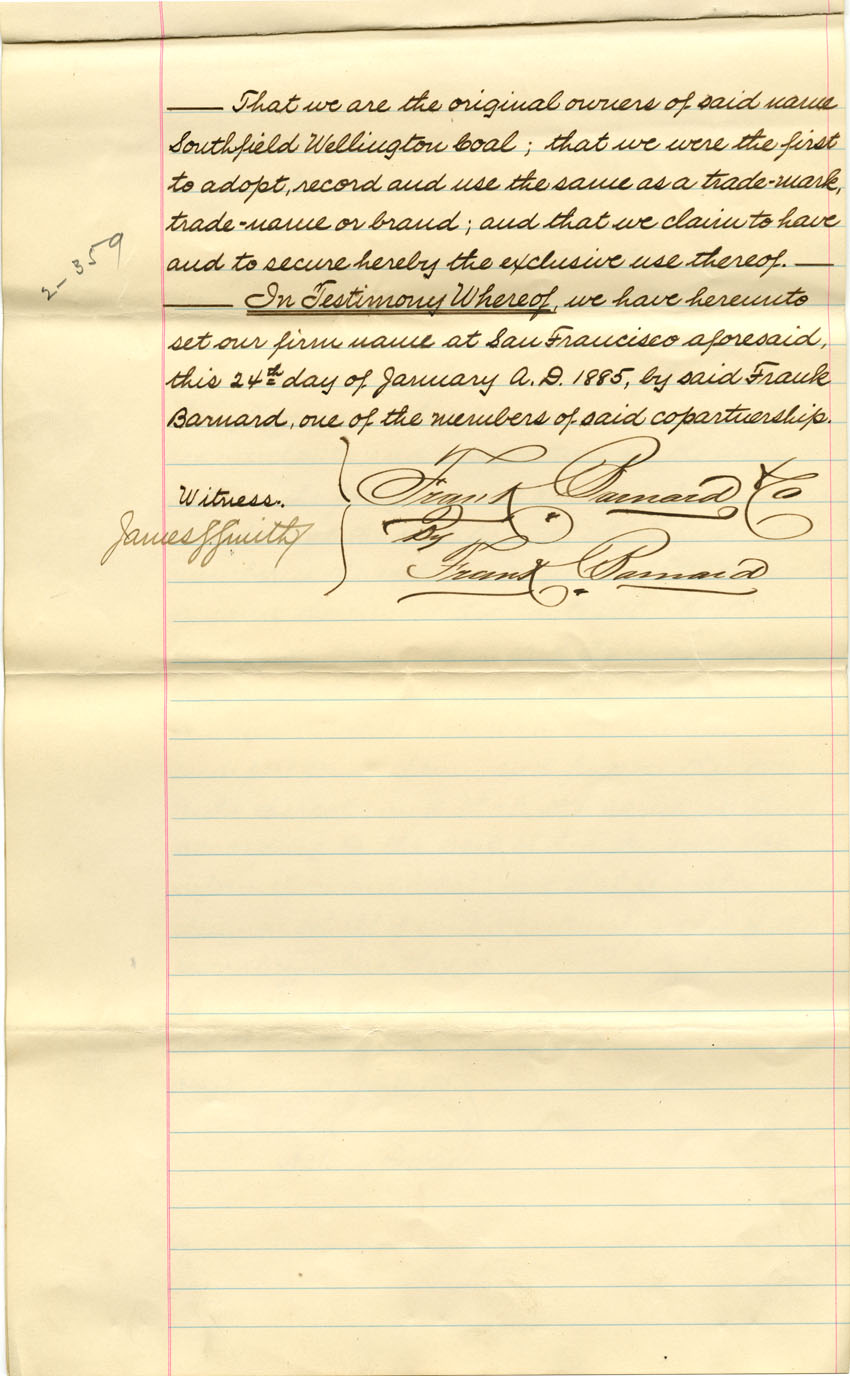 —— That we are the original owners of said name
Southfield Wellington Coal; that we were the first
to adopt, record and use the same as a trade-mark,
trade-name or brand; and that we claim to have
and to secure hereby the exclusive use thereof. ——
2-359
—— In Testimony Whereof, we have hereunto
set our firm name at San Francisco aforesaid,
this 24th day of January A. D. 1885, by said Frank
Barnard, one of the members of said copartnership.
Witness.
Frank Barnard & Co
James G. Smith
By
Frank Barnard